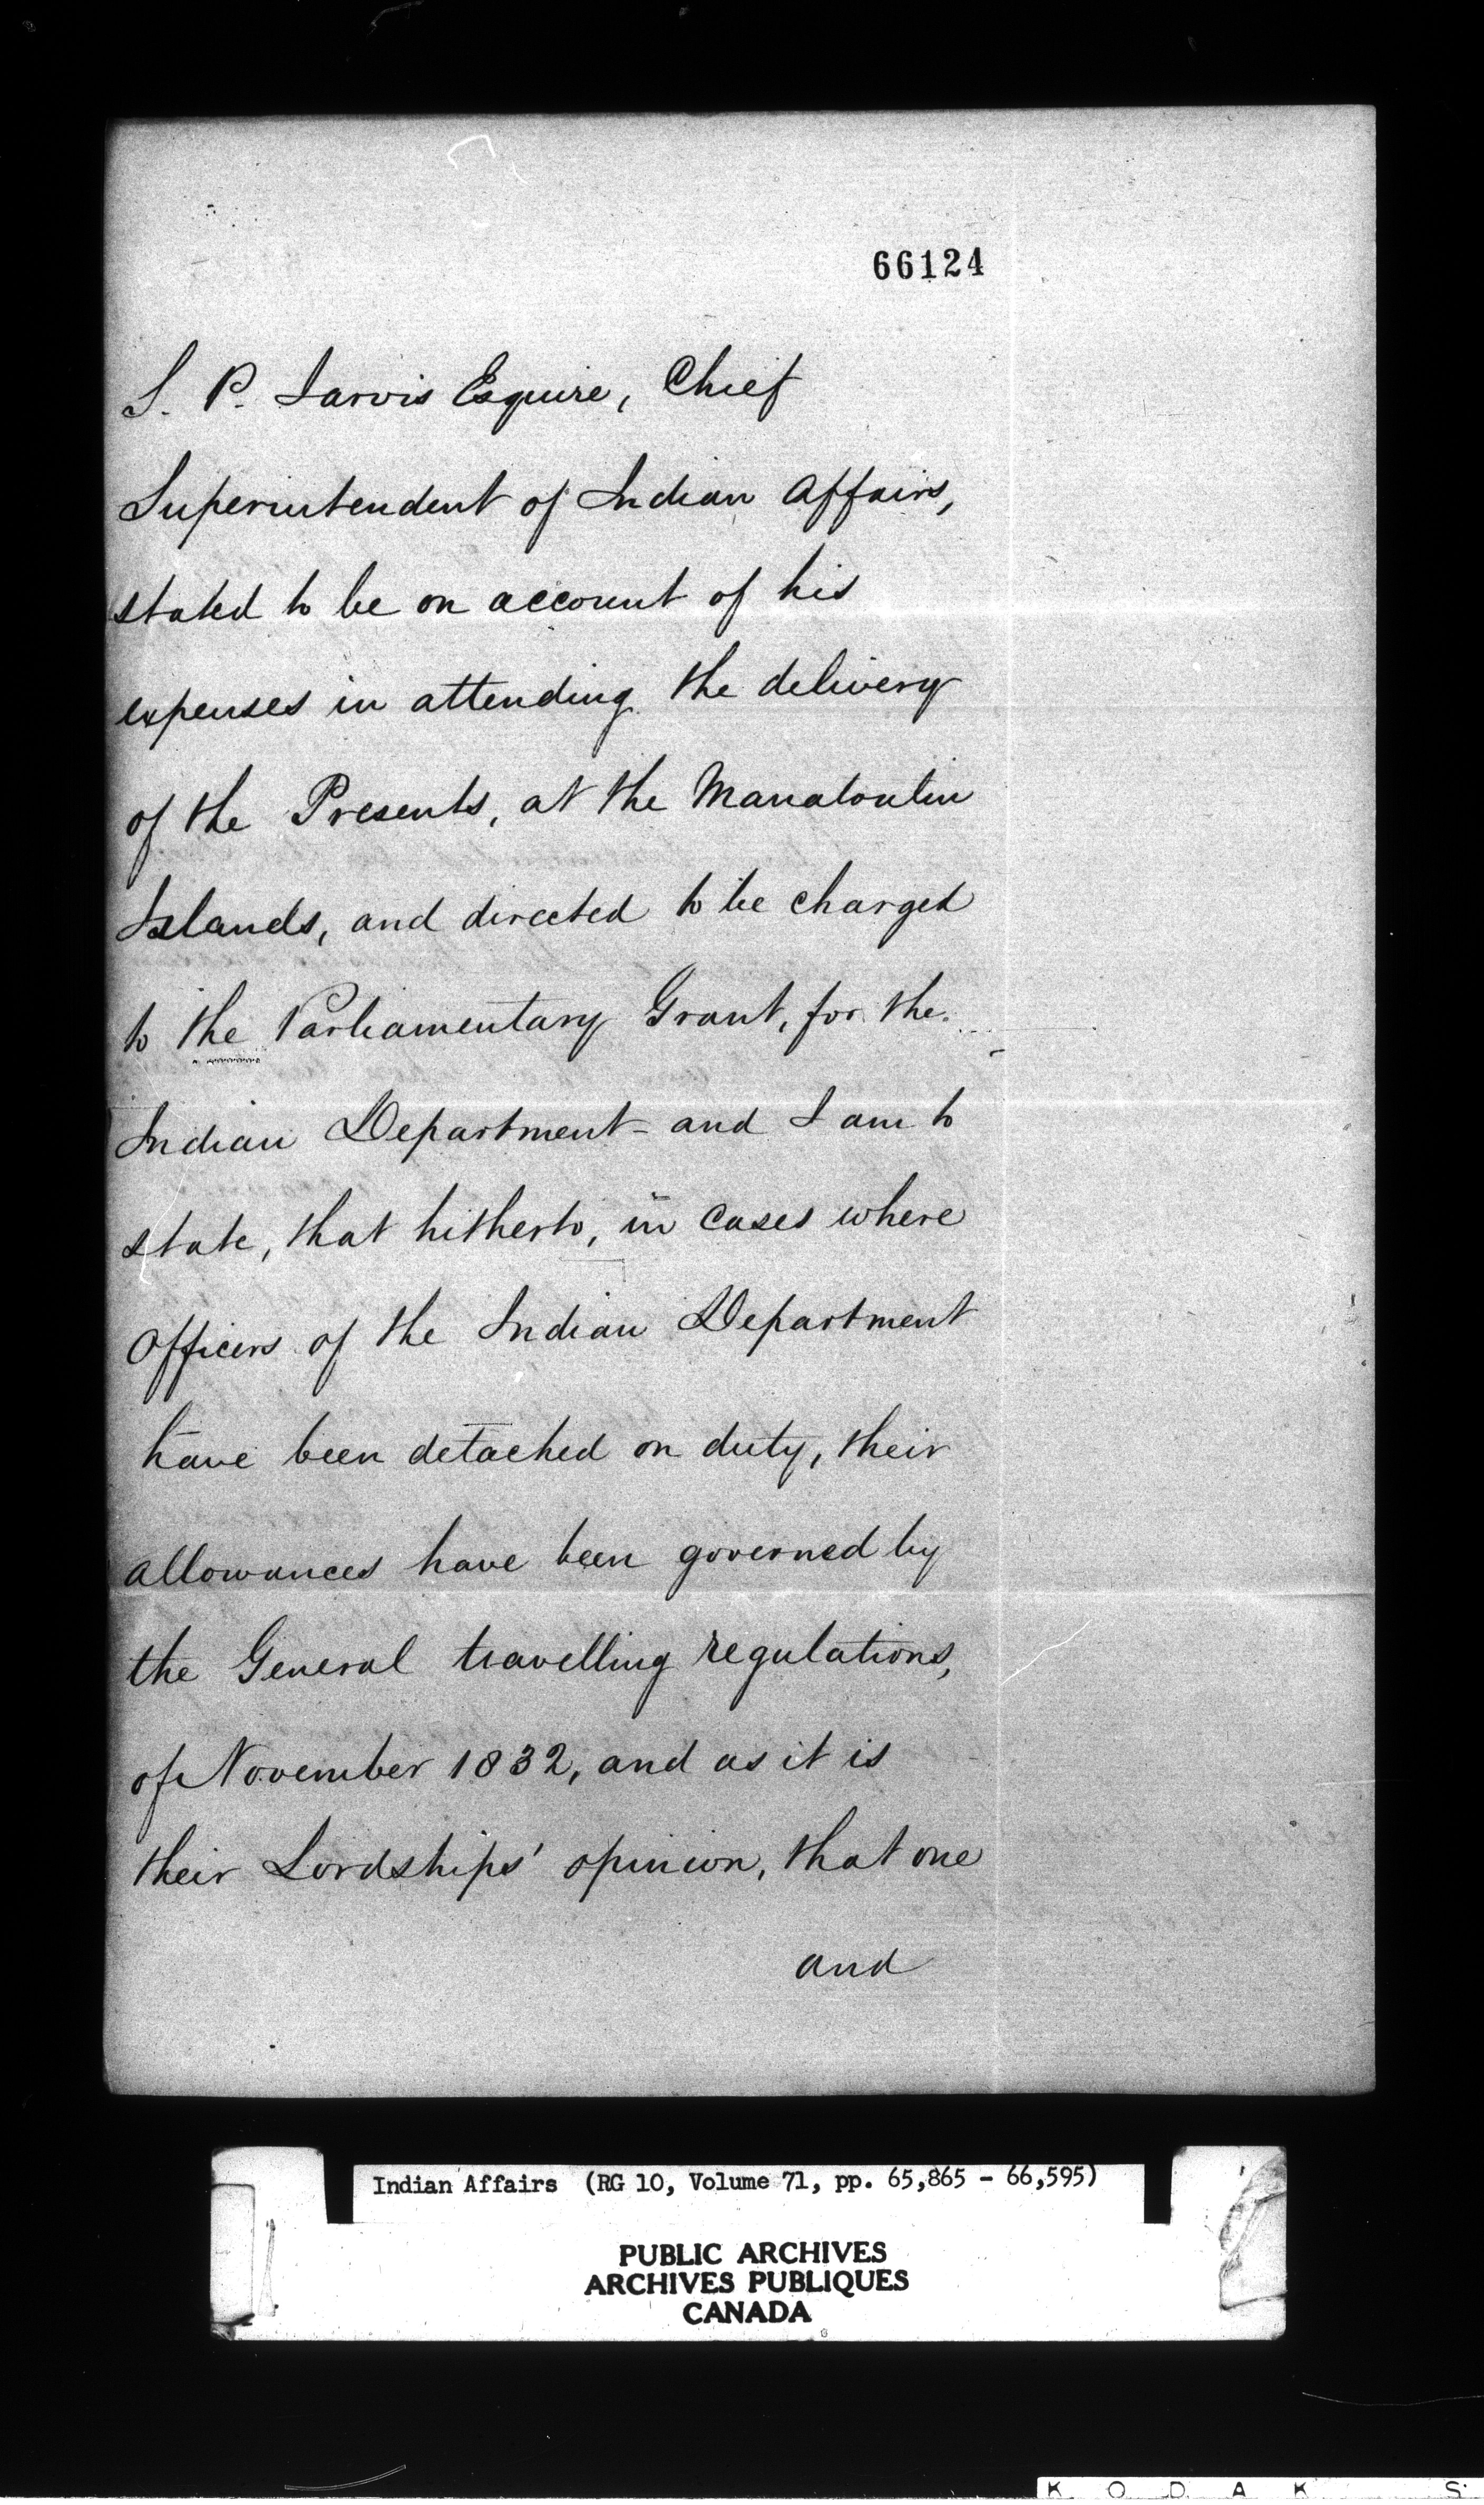 66124
S. P. Jarvis Esquire, Chief
Superintendent of Indian Affairs,
stated to be on account of his
expenses in attending the delivery
of the Presents, at the Manatoulin
Islands, and directed to be charged
to the Parliamentary Grant, for the
Indian Department - and I am to
state, that hitherto, in cases where
Officers of the Indian Department
have been detached on duty, their
allowances have been governed by
the General travelling regulations,
of November 1832, and as it is
their Lordships' opinion, that one
and
Indian Affairs (RG 10, Volume 71, pp. 65,865 - 66,595)
PUBLIC ARCHIVES
ARCHIVES PUBLIQUES
CANADA
K O D A K S